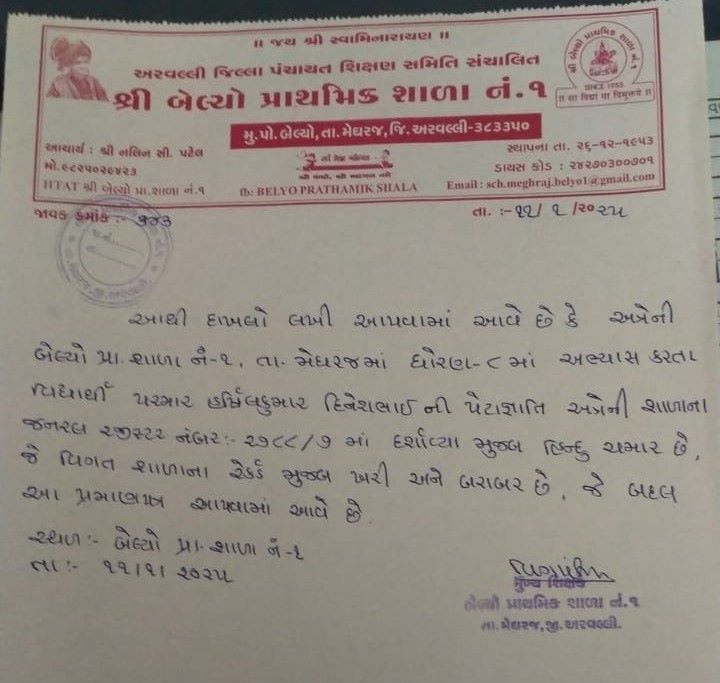 ॥ જય શ્રી સ્વામિનારાયણ ॥
અરવલ્લી જિલ્લા પંચાયત શિક્ષણ સમિતિ સંચાલિત
શ્રી બેલ્યો પ્રાથમિક શાળા નં.૧
SINCE 1953
॥ सा विद्या या विमुक्तये ॥
મુ.પો.બેલ્યો,તા.મેઘરજ,જિ.અરવલ્લી-૩૮૩૩૫૦
આચાર્ય : શ્રી નલિન સી. પટેલ
સ્થાપના તા. ૨૬-૧૨-૧૯૫૩
મો.૯૮૨૫૦૨૯૪૨૩
ડાયસ કોડ : ૨૪૨૭૦૩૦૦૭૦૧
HTAT શ્રી બેલ્યો પ્રા.શાળા નં.૧
fb: BELYO PRATHAMIK SHALA
Email : sch.meghraj.belyo1@gmail.com
જાવક ક્રમાંક :- ૩૪૩
તા. :- ૧૧/ ૧ /૨૦૨૫
આથી દાખલો લખી આપવામાં આવે છે કે અત્રેની
બેલ્યો પ્રા. શાળા નં-૧, તા. મેઘરજમાં ધોરણ-૮ માં અભ્યાસ કરતા
વિદ્યાર્થી પરમાર હર્ષિલકુમાર દિનેશભાઈ ની પેટાજ્ઞાતિ અત્રેની શાળાના
જનરલ રજીસ્ટર નંબર:- ૨૭૮૮/૭ માં દર્શાવ્યા મુજબ હિન્દુ ચમાર છે,
જે વિગત શાળાના રેકર્ડ મુજબ ખરી અને બરાબર છે. જે બદલ
આ પ્રમાણપત્ર આપવામાં આવે છે.
સ્થળ :- બેલ્યો પ્રા. શાળા નં-૧
તા :- ૧૧/૧/ ૨૦૨૫
મુખ્ય શિક્ષક
બેલ્યો પ્રાથમિક શાળા નં.૧
તા.મેઘરજ,જી.અરવલ્લી.